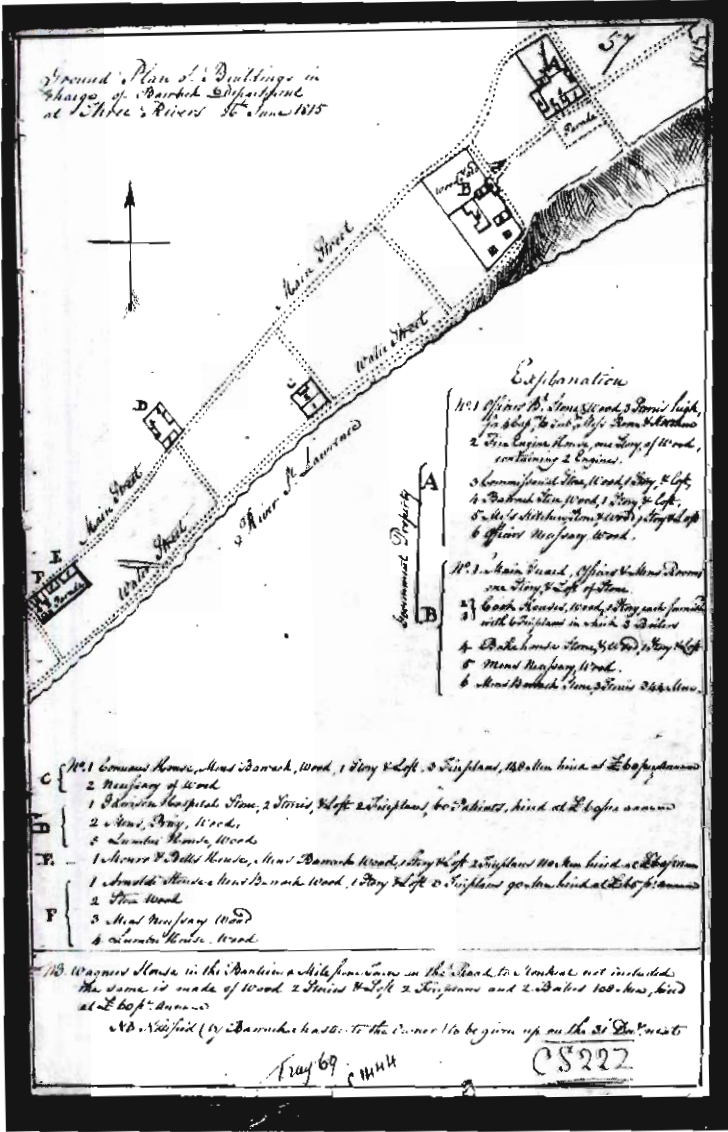 Ground Plan of Buildings in
Charge of Barrack Department
at Three Rivers June 1815
57
1815
A
Parade
B
Main Street
Water Street
C
D
River St. Lawrence
Main Street
Water Street
E
F
Parade
Explanation
Government Property
A
No. 1 Officers Bk. Stone & Wood, 3 Stories high,
Mess Room & Kitchen
2 Fire Engine House, one Story, of Wood,
containing 2 Engines.
3 Commissariat Store, Wood, 1 Story, & Loft,
4 Barrack Store Wood, 1 Story & Loft.
5 Mess Kitchen Stone & Wood 1 Story & Loft
6 Officers Necessary Wood.
B
No. 1. Main Guard, Officers & Mens Rooms
one Story, & Loft of Stone
2 3 Cook Houses, Wood, 1 Story, each furnished
with 6 Fireplaces in which 3 Boilers
4 Bakehouse Stone, & Wood, 1 Story & Loft
5 Mens Necessary, Wood.
6 Mens Barrack Stone, 3 Stories 344 Men.
C
No. 1 House, Mens Barrack, Wood, 1 Story & Loft, 3 Fireplaces, 148 Men hired at £60 pr. Annum
2 Necessary of Wood
D
1 Garrison Hospital Stone, 2 Stories, & Loft 2 Fireplaces, 60 Patients, hired at £60 pr annum
2 Mens, Privy, Wood,
3 Lumber House, Wood
E
1 Monro & Bells House, Mens Barrack Wood, 1 Story & Loft 2 Fireplaces 110 Men hired at
F
1 Arnolds House Mens Barrack Wood, 1 Story & Loft 2 Fireplaces 90 Men hired at £65 pr. annum
2 Store Wood
3 Mens Necessary Wood
4 Lumber House Wood
NB. Wagners House in the Banlieu a Mile from Town on the Road to Montreal not included
the same is made of Wood 2 Stories & Loft 2 Fireplaces and 2 Boilers 108 Men, hired
at £60 pr. annum
NB Notified (by Barrack Master to the owner) to be given up on the 31 Decr. next
Tray 69
C 1444
CS222